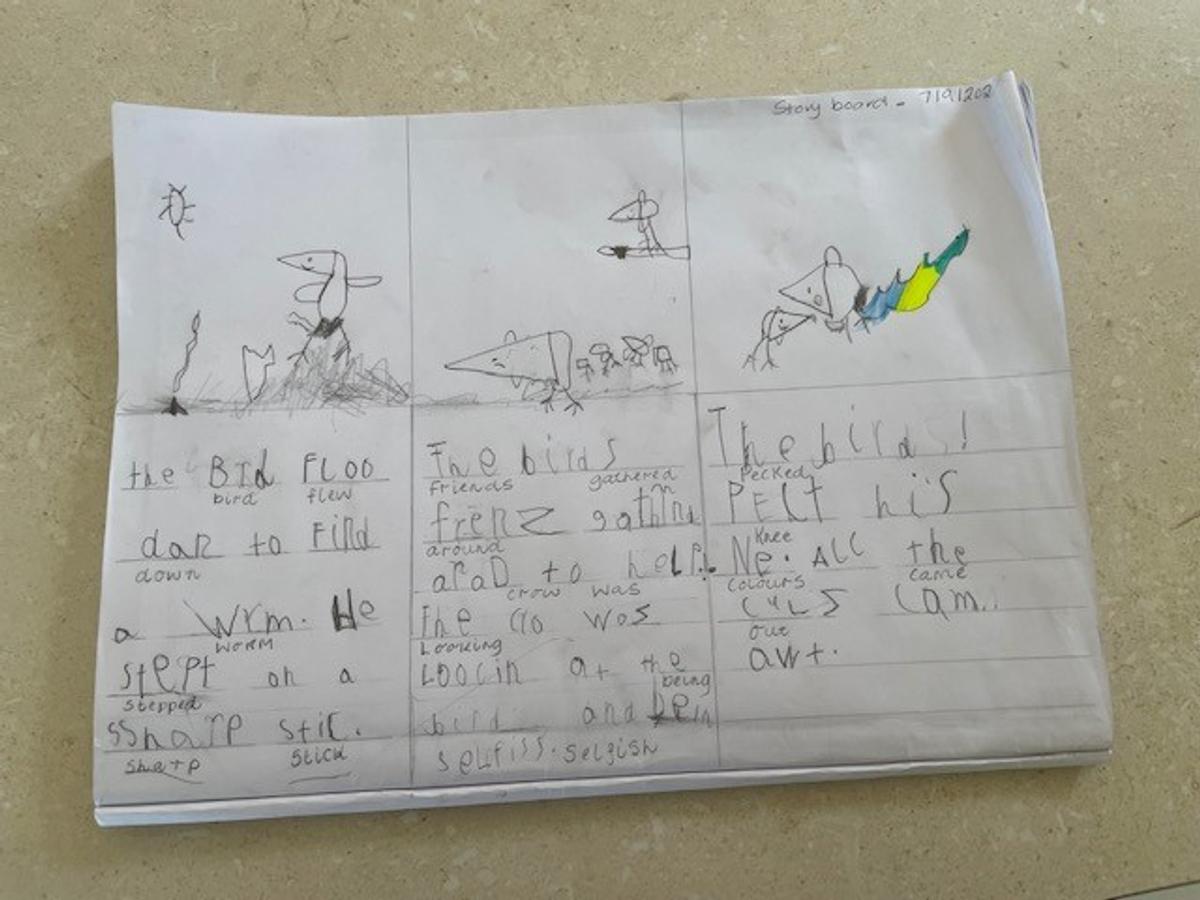 Story board - 7/9/202
the BId FLoo
bird flew
dan to FiNd
down
a Wrm. He
worm
stePt on a
stepped
sSharp stic.
Sharp Stick
The birds
friends gathered
frenz
around
araD to help!
crow was
The Cro wos
Looking
LOOcin at the
being
bird and bein
selfiss. Selfish
The birds!
Pecked
PEct his
Knee
Ne. ALL the
Colours came
CULS cam.
out
awt.